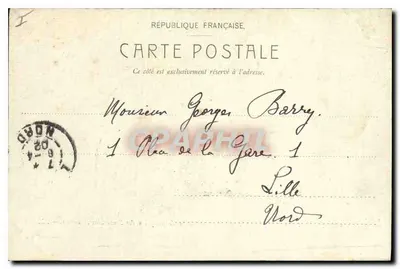 RÉPUBLIQUE FRANÇAISE
CARTE POSTALE
Ce côté est exclusivement réservé à l'adresse.
Monsieur Georges Barry
1 Place de la Gare 1
Lille
Nord
NORD
02